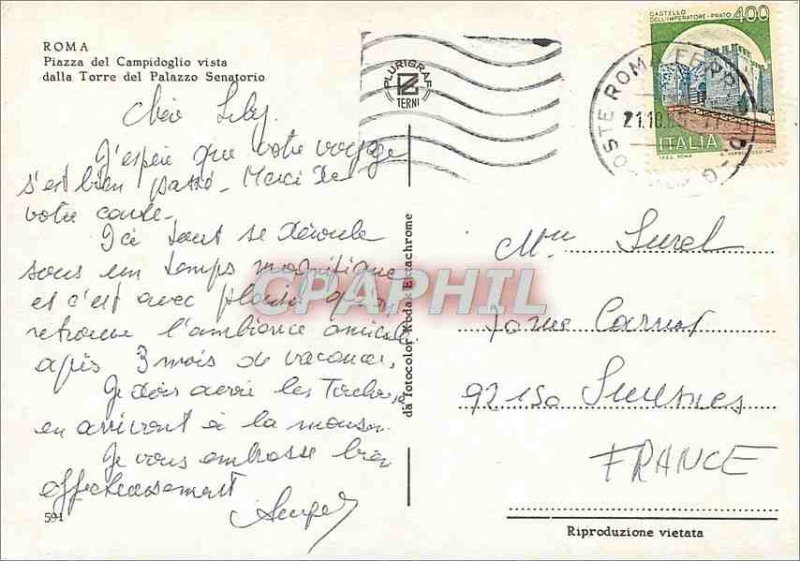 ROMA
Piazza del Campidoglio vista
dalla Torre del Palazzo Senatorio
PLURIGRAF
TERNI
CASTELLO
DELL'IMPERATORE - PRATO 400
ITALIA
POSTE ROMA FERR.
21.10
Chère Lily,
J'espère que votre voyage
s'est bien passé - Merci de
votre carte.
Ici tout se déroule
sous un temps magnifique
et c'est avec plaisir
retrouve l'ambiance amicale
après 3 mois de vacances,
Je dois avoir les
en arrivant à la maison
Je vous embrasse bien
affectueusement
591
da fotocolor Kodak Ektachrome
CPAPHIL
Surel
Carnot
92150 Suresnes
FRANCE
Riproduzione vietata